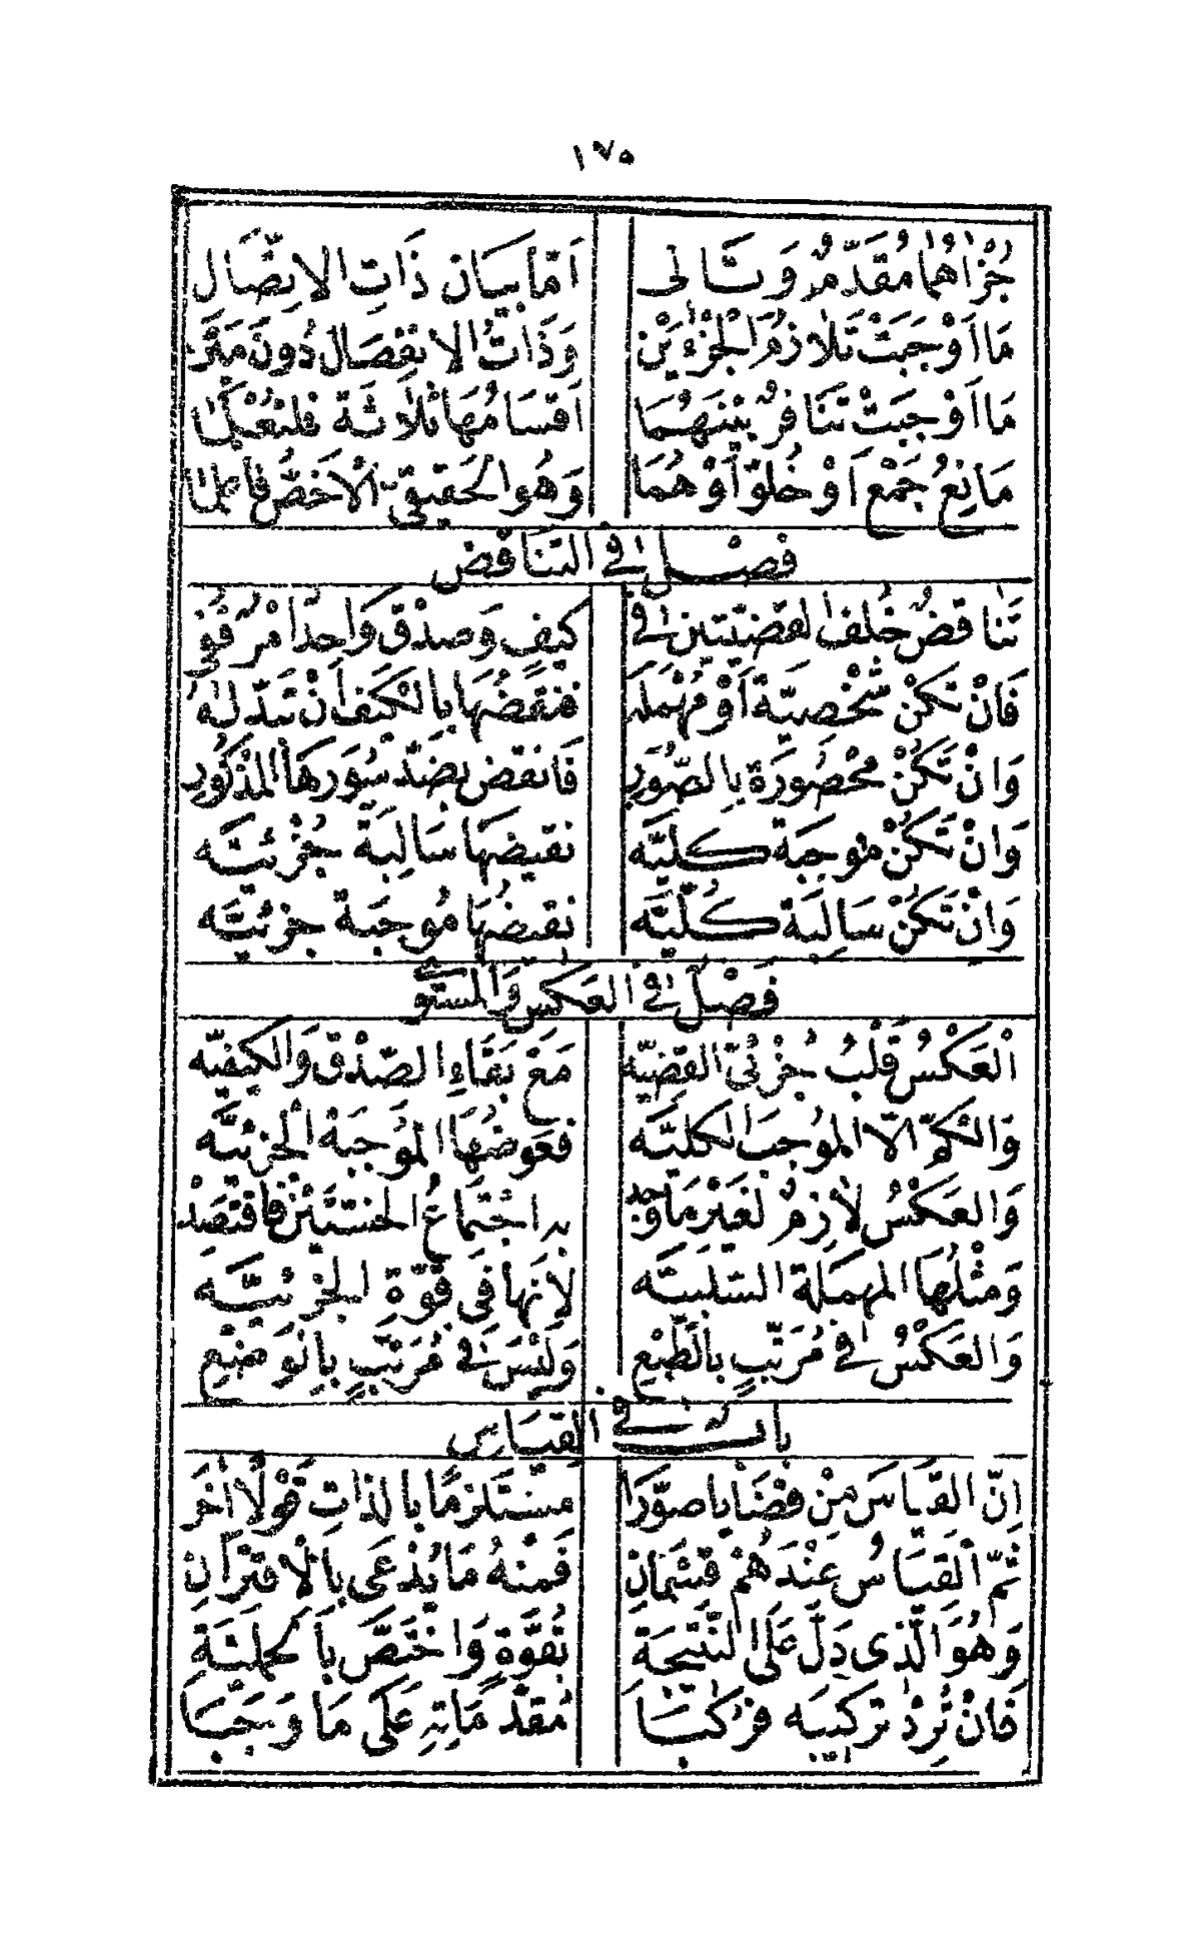 ١٧٥
جُزْاهُمَا مُقَدَّمٌ وَتَالى اَمَّا بَيَان ذَاتِ الاتِّصَال
مَا اَوْجَبَتْ تَلَازُمَ الْجُزْءَيْن وَذَاتُ الانفِصَال دُونَ مَيْن
مَا اَوْجَبَتْ تَنَافُرٌ بَيْنَهُمَا اَقسَامُهَا ثَلَاثَة فلتُعْلَمَا
مَانِعُ جَمْع اَوْ خُلوّ اَوْ هُمَا وَهُوَ الحَقيقىّ الْاَخَصُّ فاعلما
فصْل فى التنَاقض
تَنَاقضٌ خُلف القضيّتين فى كيف وَصِدْق وَاحِدٍ اَمْرٌ قُفى
فَانْ تكنْ شَخْصِيّة اَوْ مُهْمَلَه فنقضُهَا بالْكَيْف اَنْ تبَدّلهُ
وَانْ تَكُنْ مَحْصُورَة بِالصُّوَرِ فَانقض بضِدّ سُورَهَا المَذْكُورِ
وَانْ تَكُنْ مُوجبَة كليّه نقيضهَا سَالِبَة جُزْئيَّه
وَانْ تَكُنْ سَالِبَة كُلّيَّه نقيضُهَا مُوجَبة جزئيَّه
فَصْل فى العَكس وَالمستوى
اَلعَكْسُ قَلْبُ جُزْئىِّ القَضِيّه مَعْ بَقَاءِ الصّدْق وَالكيفيّه
وَالْكمّ الاّ الموُجب الكليَّه فعَوضُهَا الموُجَبَة الجزئيَّه
وَالعَكْسُ لاَزِمٌ لغَيْر مَا وُجد به اجْتِمَاعُ الخسّتَيْن فاقتَصِدْ
وَمثْلُهَا المهمَلة السَّلبيَّه لِاَنهَا فى قُوّةِ الجزْئيَّه
وَالعَكْسُ فى مُرَتّبٍ بالطّبْعِ وَليْسَ فى مُرَتّبٍ بِالوَضْعِ
باب فى القيَاس
اِنّ القيَاسَ مِنْ قضَايَا صوّرَا مسْتَلزمًا بالذاتِ قَوْلًا اٰخَر
ثمّ القيَاسُ عِنْدَهُمْ قسْمَانِ فَمِنْهُ مَا يُدْعَى بالْاقترَانِ
وَهُوَ الّذى دَلّ عَلى النّتيجَةِ بقُوَّةٍ وَاخْتَصّ باَلحملِيّةِ
فَانْ تُرِدْ تركيبَه فركِّبَا مُقدّمَاتِهِ عَلَى مَا وَجَبَا